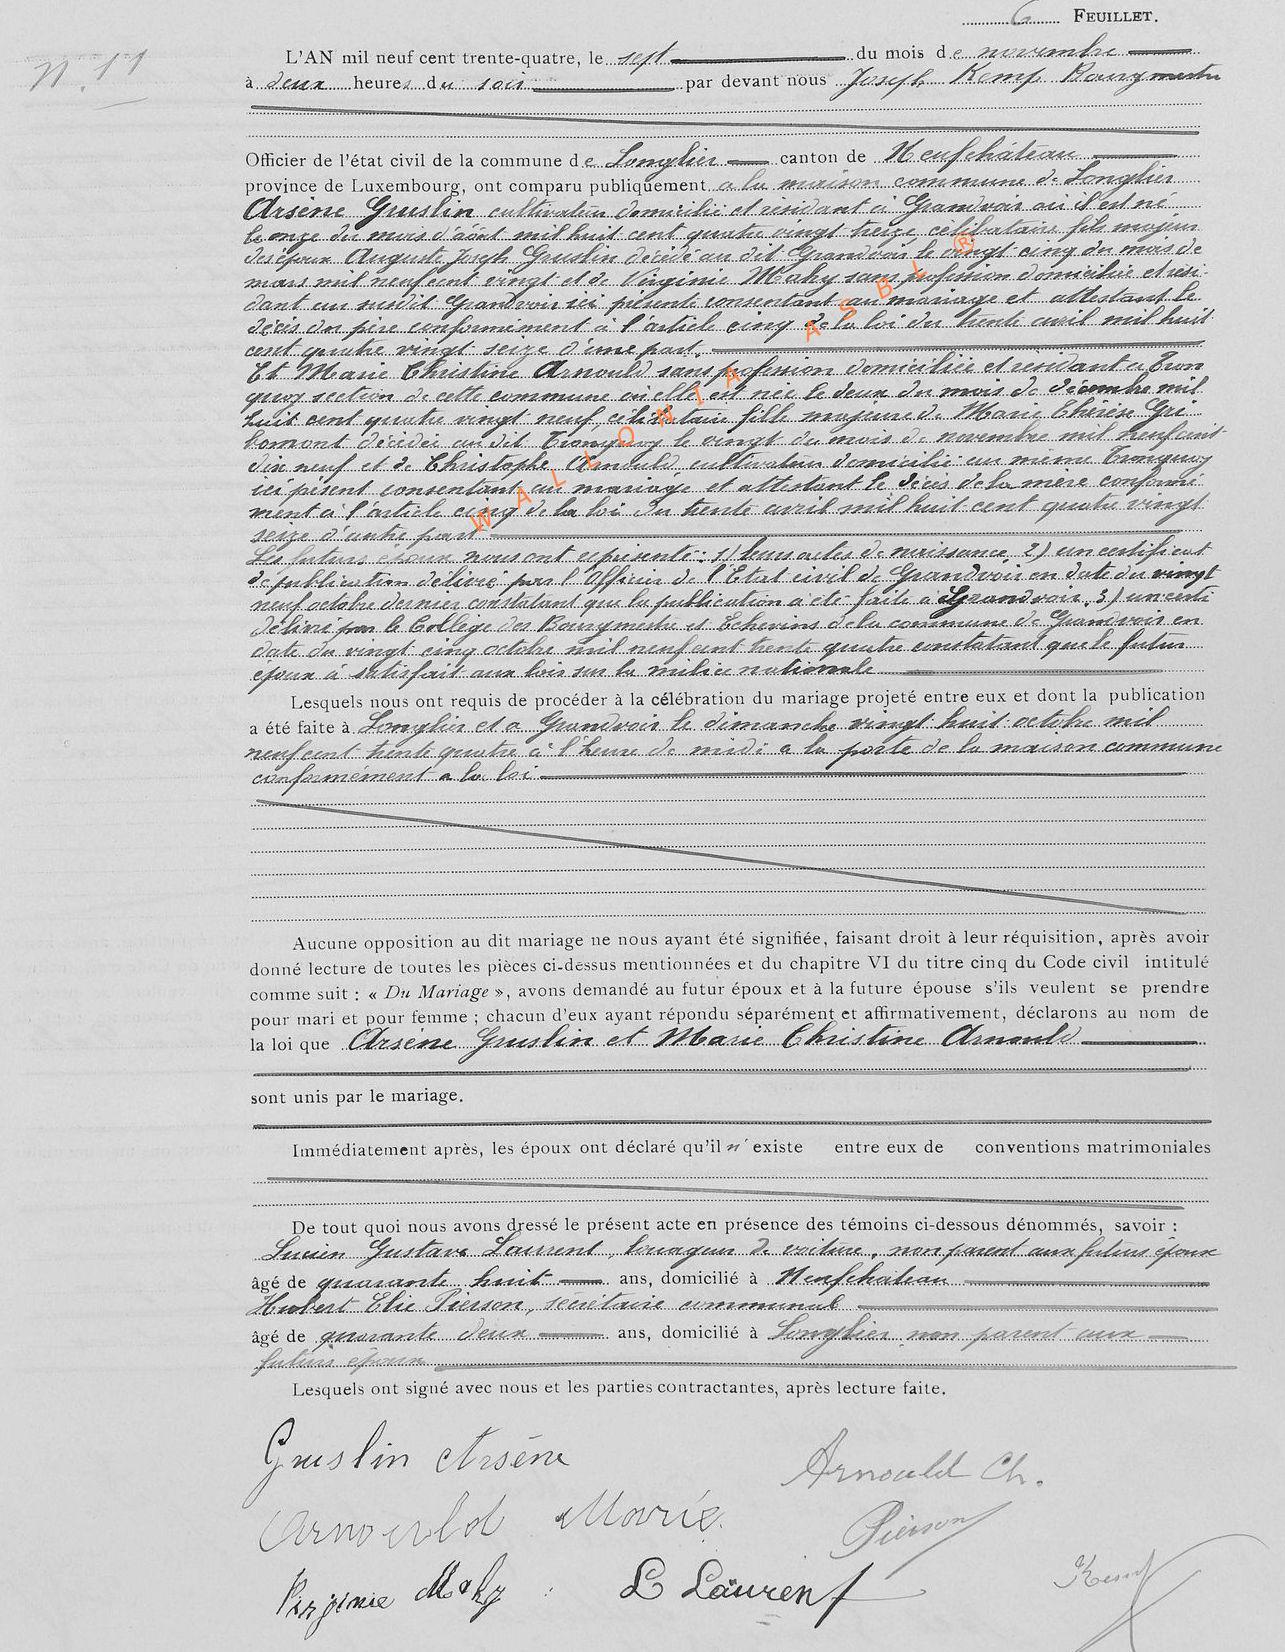 6 FEUILLET.
N. 11
L'AN mil neuf cent trente-quatre, le sept du mois de novembre
à deux heures du soir par devant nous Joseph Kemp Bourgmestre
Officier de l'état civil de la commune de Longlier canton de Neufchâteau
province de Luxembourg, ont comparu publiquement a la maison commune de Longlier
Arsène Gruslin cultivateur domicilié et résidant à Grandvoir où il est né
le onze du mois d'août mil huit cent quatre vingt treize, célibataire fils majeur
des époux Auguste Joseph Gruslin décédé au dit Grandvoir le vingt cinq du mois de
mars mil neuf cent vingt et de Virginie Mahy sans profession domiciliée et rési-
dant au susdit Grandvoir ici présente consentant au mariage et attestant le
décès du père conformément à l'article cinq de la loi du trente avril mil huit
cent quatre vingt seize d'une part.
Et Marie Christine Arnould sans profession domiciliée et résidant à Tron
quoy section de cette commune où elle est née le deux du mois de décembre mil
huit cent quatre vingt neuf, célibataire fille majeure de Marie Thérèse Gri
bomont décédée au dit Tronquoy le vingt du mois de novembre mil neuf cent
dix neuf et de Christophe Arnould cultivateur domicilié au même Tronquoy
ici présent consentant au mariage et attestant le décès de la mère conformé
ment à l'article cinq de la loi du trente avril mil huit cent quatre vingt
seize d'autre part
Les futurs époux nous ont représenté : 1) leurs actes de naissance 2) un certificat
de publication délivré par l'Officier de l'Etat civil de Grandvoir en date du vingt
neuf octobre dernier constatant que la publication a été faite a Grandvoir. 3) un certi
délivré par le Collège des Bourgmestre et Echevins de la commune de Grandvoir en
date du vingt cinq octobre mil neuf cent trente quatre constatant que le futur
époux à satisfait aux lois sur la milice nationale
Lesquels nous ont requis de procéder à la célébration du mariage projeté entre eux et dont la publication
a été faite à Longlier et a Grandvoir le dimanche vingt huit octobre mil
neuf cent trente quatre à l'heure de midi a la porte de la maison commune
conformément a la loi
Aucune opposition au dit mariage ne nous ayant été signifiée, faisant droit à leur réquisition, après avoir
donné lecture de toutes les pièces ci-dessus mentionnées et du chapitre VI du titre cinq du Code civil intitulé
comme suit : « Du Mariage », avons demandé au futur époux et à la future épouse s'ils veulent se prendre
pour mari et pour femme ; chacun d'eux ayant répondu séparément et affirmativement, déclarons au nom de
la loi que Arsène Gruslin et Marie Christine Arnould
sont unis par le mariage.
Immédiatement après, les époux ont déclaré qu'il n'existe entre eux de conventions matrimoniales
De tout quoi nous avons dressé le présent acte en présence des témoins ci-dessous dénommés, savoir :
Lucien Gustave Laurent, louageur de voiture, non parent aux futurs époux
âgé de quarante huit ans, domicilié à Neufchâteau
Hubert Elie Pierson, secrétaire communal
âgé de quarante deux ans, domicilié à Longlier non parent aux
futurs époux
Lesquels ont signé avec nous et les parties contractantes, après lecture faite.
Gruslin Arsène
Arnould Ch.
Arnould Marie.
Pierson
Virginie Mahy
L Laurent
Kemp
WALLONIA ASBL ®